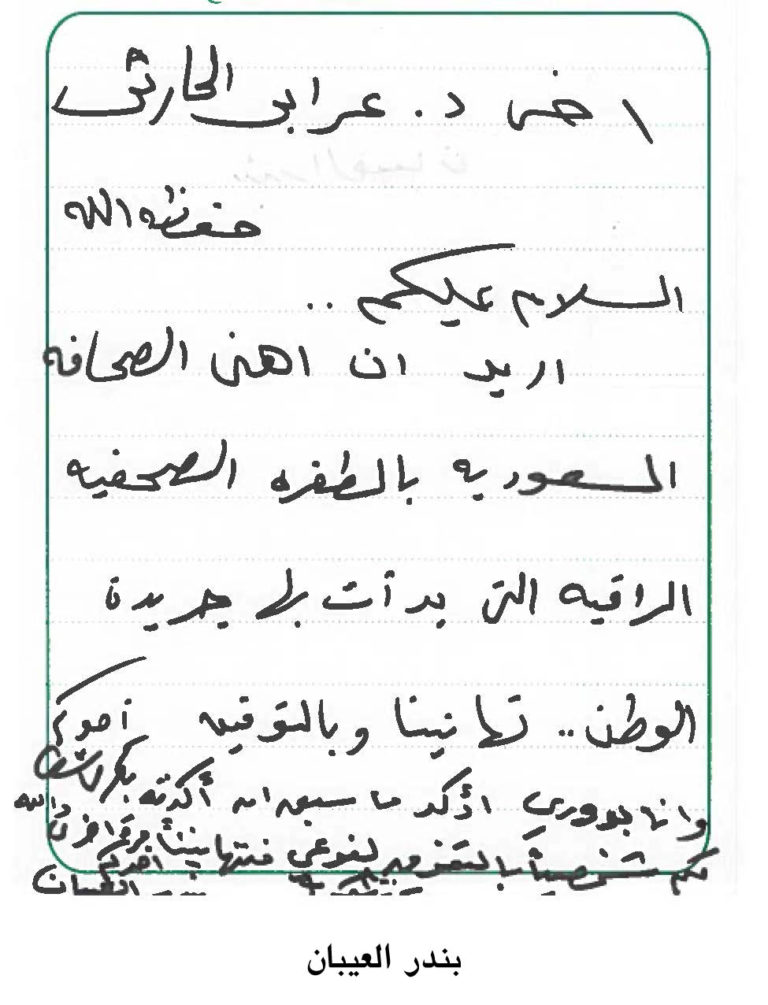 اخي د. عرابي الحارثي
حفظه الله
السلام عليكم ..
اريد ان اهنئ الصحافه
السعوديه بالطفره الصحفيه
الراقيه التي بدأت بها جريدة
الوطن .. تهانينا وبالتوفيق أخوكم
وانا بدوري اؤكد ما سبق ان أكدته
لكم شخصياً بالتميز النوعي فتهانينا مرة اخرى والله
أخوكم
بندر العيبان